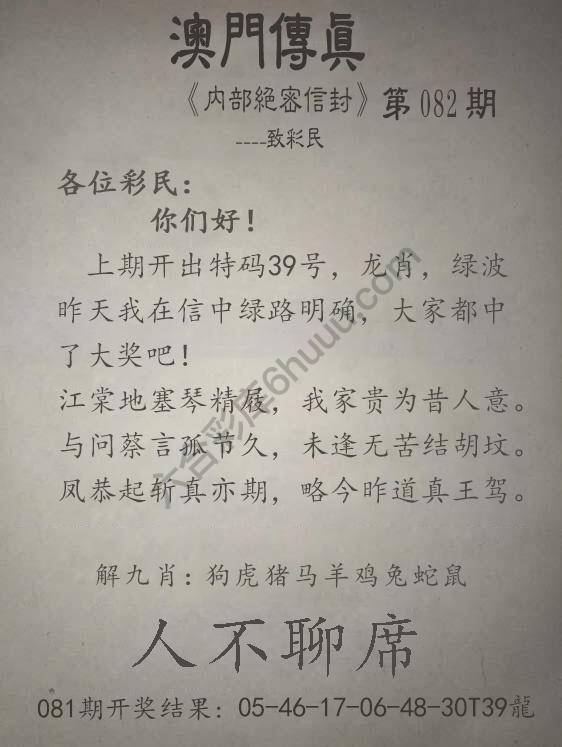 澳門傳真
《内部絕密信封》第082期
----致彩民
各位彩民：
你们好！
上期开出特码39号，龙肖，绿波
昨天我在信中绿路明确，大家都中
了大奖吧！
江棠地塞琴精屐，我家贵为昔人意。
与问蔡言孤节久，未逢无苦结胡坟。
凤恭起斩真亦期，略今昨道真王驾。
解九肖：狗虎猪马羊鸡兔蛇鼠
人不聊席
081期开奖结果：05-46-17-06-48-30T39龍
六合彩库6huuu.com